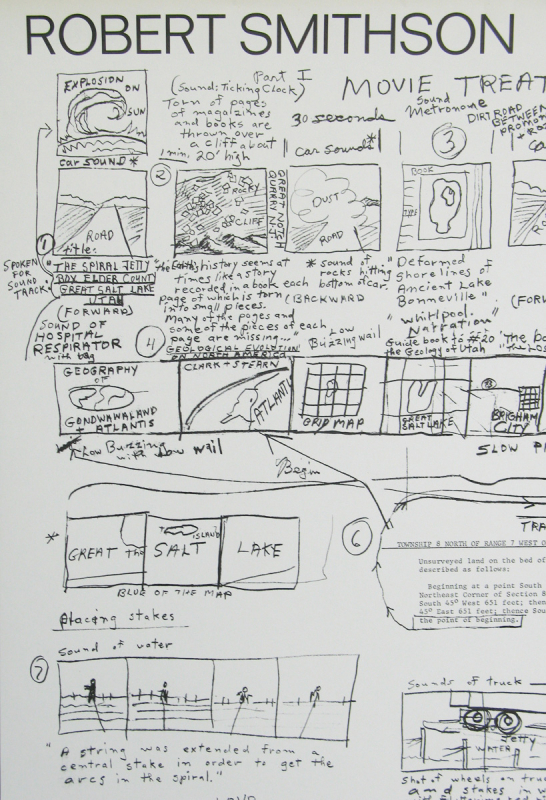 ROBERT SMITHSON
Part I
MOVIE TREAT
EXPLOSION
ON
SUN
(Sound: Ticking Clock)
Torn of pages
of magazines
and books are
thrown over
a cliff about
1 min. 20' high
30 seconds
Sound
Metronome
DIRT ROAD
BETWEEN
PROMON
car sound *
Car Sounds *
3
2
ROAD
title:
ROCKY
CLIFF
GREAT NOTCH
QUARRY NJ
DUST
ROAD
BOOK
TYPE
1
SPOKEN
FOR
SOUND
TRACK
"THE SPIRAL JETTY
BOX ELDER COUNTY
GREAT SALT LAKE
UTAH
(FORWARD)
SOUND OF
HOSPITAL
RESPIRATOR
with bag
"the Earth's history seems at
times like a story
recorded in a book each
page of which is torn
into small pieces.
Many of the pages and
some of the pieces of each
page are missing..."
GEOLOGICAL EVOLUTION
OF NORTH AMERICA
* sound of
rocks hitting
bottom of car.
(BACKWARD
Low
Buzzing wail
"Deformed
shorelines of
Ancient Lake
Bonneville"
"whirlpool"
Narration
Guide book to #20
the Geology of Utah
(FORW
4
GEOGRAPHY
OF
GONDWANALAND
+ ATLANTIS
CLARK + STERN
ATLANTIS
GRID MAP
GREAT
SALT LAKE
BRIGHAM
CITY
Low Buzzing
with low wail
SLOW P
Begin
6
TRA
TOWNSHIP 8 NORTH OF RANGE 7 WEST O
Unsurveyed land on the bed of
described as follows:
Beginning at a point South
Northeast Corner of Section 8
South 45° West 651 feet; then
45° East 651 feet; thence Sou
the point of beginning.
*
GREAT the
SALT
ISLAND
LAKE
BLUE OF THE MAP
Placing stakes
Sound of water
7
"A string was extended from a
central stake in order to get the
arcs in the spiral."
Sounds of truck
Jetty
WATER
Shot of wheels on truck
and stakes in w